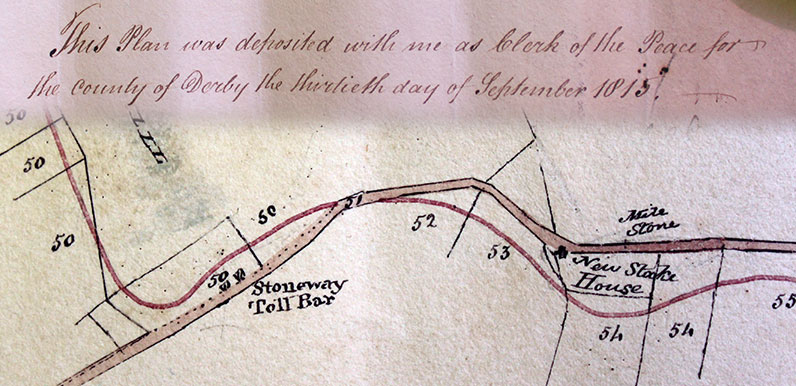 This Plan was deposited with me as Clerk of the Peace for
the county of Derby the thirtieth day of September 1813.
50
50
50
50
50
51
52
53
Mile
Stone
Stoneway
Toll Bar
New Stake
House
54
54
55